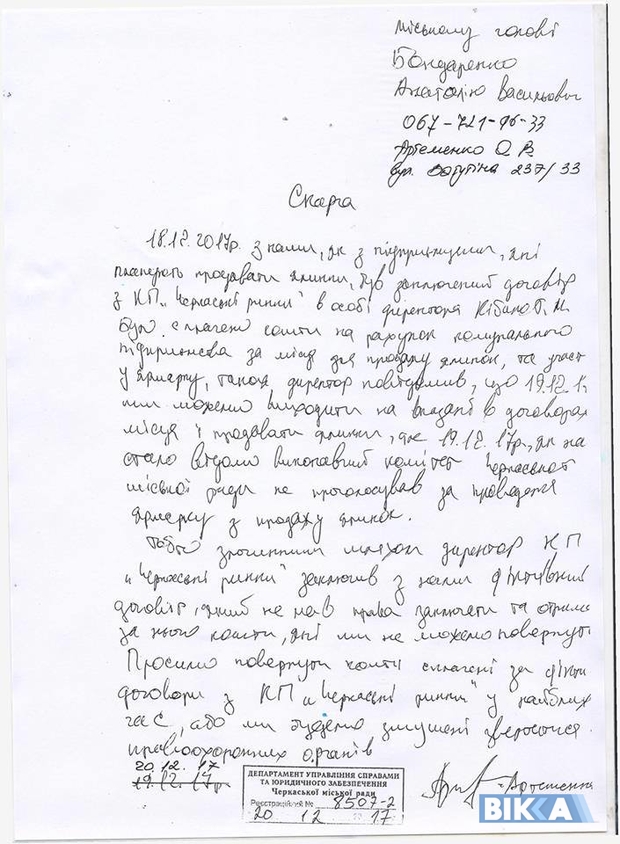 міському голові
Бондаренко
Анатолію Васильович
067-721-96-33
Артеменко О В
вул. Ватутіна 237/33
Скарга
18.12.2017р. з нами, як з підприємцями, які
планують продавати ялинки, був заключений договір
з КП „Черкаські ринки" в особі директора
Було сплачено кошти на рахунок комунального
підприємства за місце для продажу ялинок, та участ
у ярмарку, також директор повідомив, що 19.12.1
ми можемо виходити на вказані в договорах
місця і продавати ялинки, але 19.12.17р, як на
стало відомо виконавчий комітет Черкаської
міської ради не проголосував за проведення
ярмарку з продажу ялинок.
Тобто злочинним шляхом директор КП
„Черкаські ринки" заключив з нами фіктивний
договір, який не мав права заключати та отрима
за нього кошти, які ми не можемо повернути
Просимо повернути кошти сплачені за фікти
договори з КП „Черкаські ринки" у найближ
час, або ми будемо змушені звертатися
правоохоронних органів
20.12.17
19.12.17р.
ДЕПАРТАМЕНТ УПРАВЛІННЯ СПРАВАМИ
ТА ЮРИДИЧНОГО ЗАБЕЗПЕЧЕННЯ
Черкаської міської ради
Реєстраційний № 8507-2
20 12 17
Артеменко
ВІККА